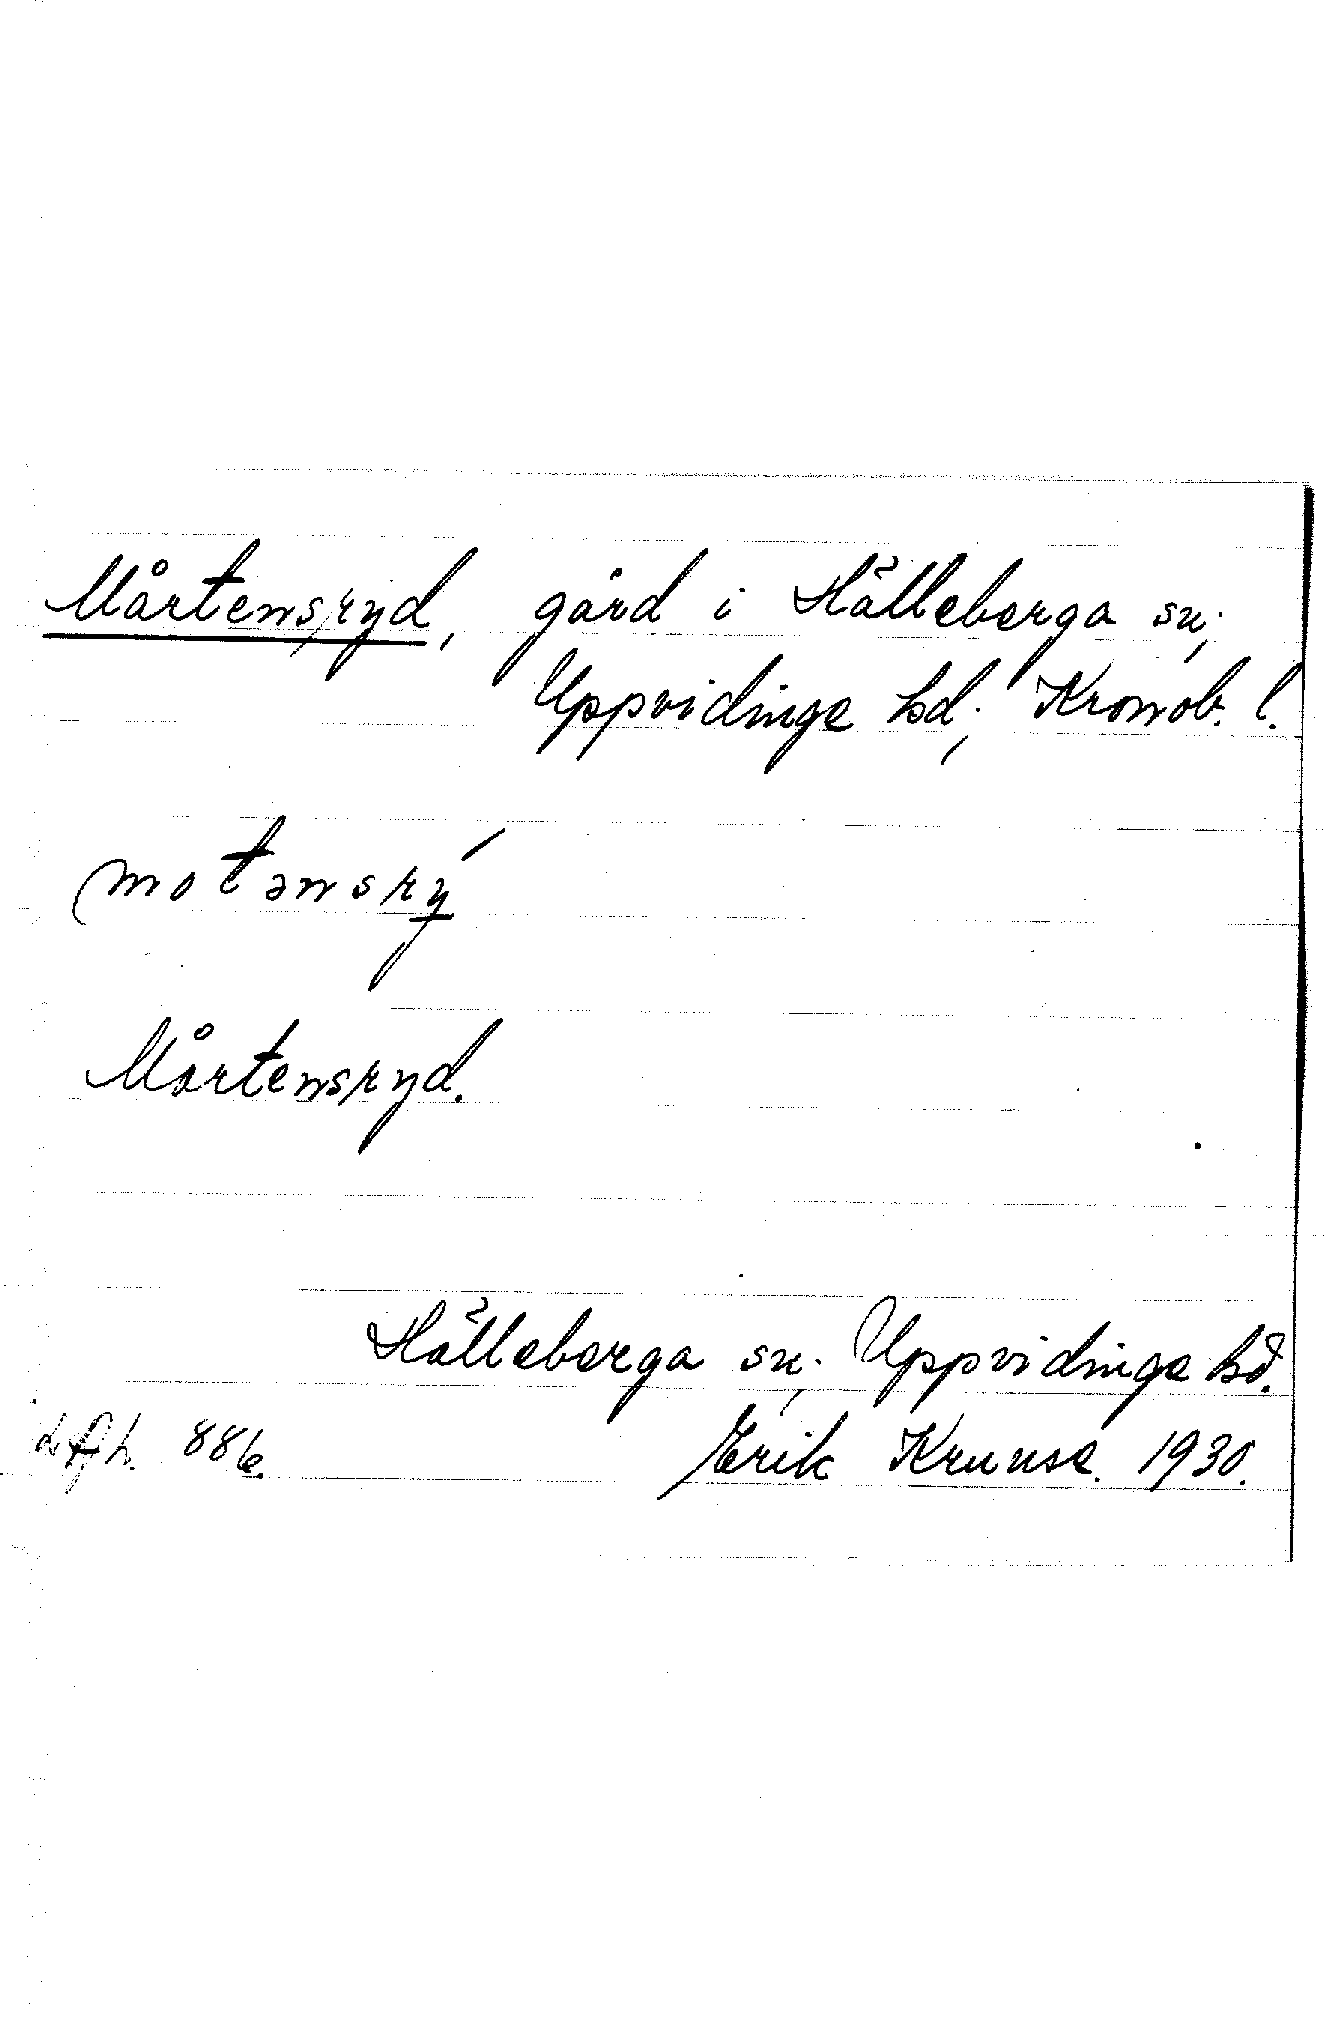 Mårtensryd, gård i Hälleberga sn,
Uppvidinge hd, Kronob. l.
motənsrý
Mårtensryd.
Hälleberga sn, Uppvidinge hd.
886.
Erik Kruuse. 1930.